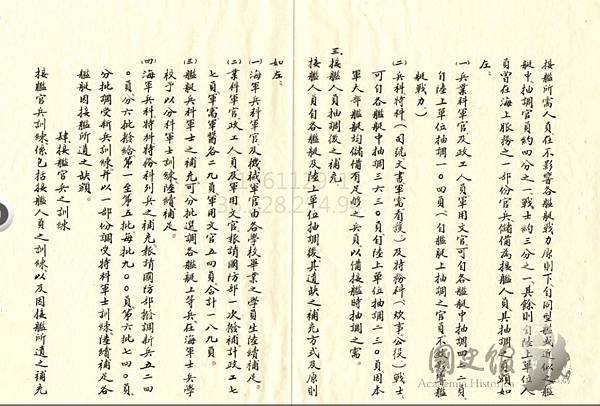 接艦所需人員在不影響各艦艇戰力原則下自同型艦或近似之艦
艇中抽調官員約四分之一戰士約三分之一其餘則自陸上單位人
員曾在海上服務之一部份官兵儲備為接艦人員其抽調之員額如
左：
㈠兵業科軍官及政工人員軍用文官可自各艦艇中抽調四
自陸上單位抽調一〇四員（自艦艇上抽調之官員不致影響艦
艇戰力）
㈡兵科特科（司號文書軍需看護）及特務科（炊事公役）戰士
可自各艦艇中抽調三六三〇員自陸上單位抽調二三〇員因本
軍大部艦艇均儲備有足夠之兵員以備接艦時抽調之需
三、接艦人員抽調後之補充
接艦人員自各艦艇及陸上單位抽調後其遺缺之補充方式及原則
如左：
㈠海軍兵科軍官及機械軍官由各學校畢業之學員生陸續補足。
㈡業科軍官政工人員及軍用文官報請國防部一次撥補計政工七
七員軍需軍醫各二九員軍用文官五四員合計一八九員。
㈢艦艇兵科軍士之補充可分批選調各艦艇上等兵在海軍士兵學
校予以分科軍士訓練陸續補足。
㈣海軍兵科特科特務科列兵之補充報請國防部撥調新兵五二四
〇員分六批撥給第一至第五批每批九〇〇員第六批七四〇員
分批調受新兵訓練并以一部份調受特科軍士訓練陸續補足各
艦艇因接艦所遺之缺額。
肆、接艦官兵之訓練
接艦官兵訓練係包括接艦人員之訓練以及因接艦所遺之補充
國史館
Academia Historica